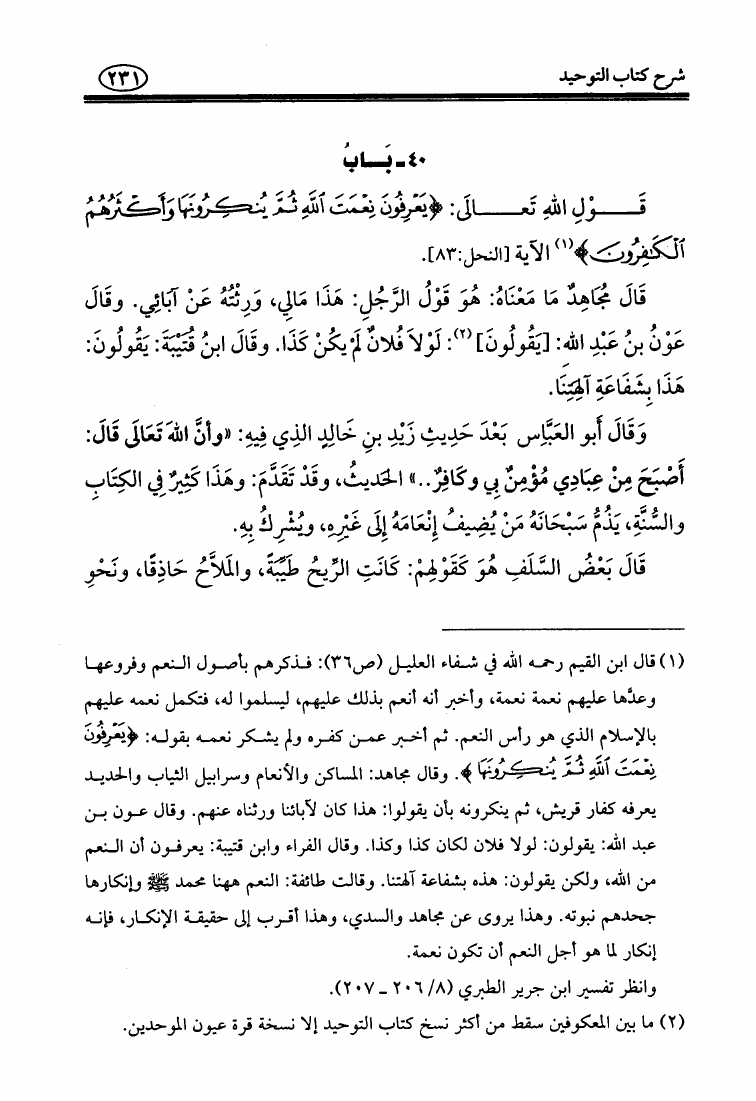 شرح كتاب التوحيد
٢٣١
٤٠ - بَابُ
قَوْلِ اللهِ تَعَالَى: ﴿يَعْرِفُونَ نِعْمَتَ ٱللَّهِ ثُمَّ يُنكِرُونَهَا وَأَكْثَرُهُمُ
ٱلْكَٰفِرُونَ﴾(١) الآية [النحل:٨٣].
قَالَ مُجَاهِدٌ مَا مَعْنَاهُ: هُوَ قَوْلُ الرَّجُلِ: هَذَا مَالِي، وَرِثْتُهُ عَنْ آبَائِي. وقَالَ
عَوْنُ بنُ عَبْدِ الله: [يَقُولُونَ](٢): لَوْلاَ فُلانٌ لَمْ يكُنْ كَذَا. وقَالَ ابنُ قُتَيْبَةَ: يَقُولُونَ:
هَذَا بِشَفَاعَةِ آلِهَتِنَا.
وَقَالَ أَبو العَبَّاس بَعْدَ حَدِيثِ زَيْدِ بنِ خَالِدٍ الذِي فِيهِ: «وأنَّ اللهَ تَعَالَى قَالَ:
أَصْبَحَ مِنْ عِبَادِي مُؤْمِنٌ بِي وكَافِرٌ..» الحَديثُ، وقَدْ تَقَدَّمَ: وهَذَا كَثِيرٌ فِي الكِتَابِ
والسُّنَّةِ، يَذُمُّ سَبْحَانَهُ مَنْ يُضِيفُ إِنْعَامَهُ إِلَى غَيْرِهِ، ويُشْرِكُ بِهِ.
قَالَ بَعْضُ السَّلَفِ هُوَ كَقَوْلِهِمْ: كَانَتِ الرِّيحُ طَيِّبَةً، والمَلاَّحُ حَاذِقًا، ونَحْوِ
(١) قال ابن القيم رحمه الله في شفاء العليل (ص٣٦): فذكرهم بأصول النعم وفروعها
وعدَّها عليهم نعمة نعمة، وأخبر أنه أنعم بذلك عليهم، ليسلموا له، فتكمل نعمه عليهم
بالإسلام الذي هو رأس النعم. ثم أخبر عمن كفره ولم يشكر نعمه بقوله: ﴿يَعْرِفُونَ
نِعْمَتَ ٱللَّهِ ثُمَّ يُنكِرُونَهَا﴾. وقال مجاهد: المساكن والأنعام وسرابيل الثياب والحديد
يعرفه كفار قريش، ثم ينكرونه بأن يقولوا: هذا كان لآبائنا ورثناه عنهم. وقال عون بن
عبد الله: يقولون: لولا فلان لكان كذا وكذا. وقال الفراء وابن قتيبة: يعرفون أن النعم
من الله، ولكن يقولون: هذه بشفاعة آلهتنا. وقالت طائفة: النعم ههنا محمد ﷺ وإنكارها
جحدهم نبوته. وهذا يروى عن مجاهد والسدي، وهذا أقرب إلى حقيقة الإنكار، فإنه
إنكار لما هو أجل النعم أن تكون نعمة.
وانظر تفسير ابن جرير الطبري (٨/ ٢٠٦ - ٢٠٧).
(٢) ما بين المعكوفين سقط من أكثر نسخ كتاب التوحيد إلا نسخة قرة عيون الموحدين.